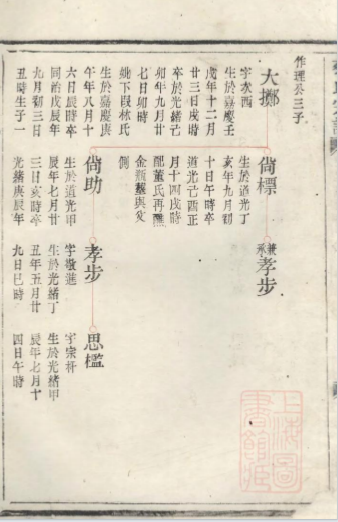 作理公三子
大擲
生於嘉慶壬
戌年十二月
廿三日戌時
卒於光緒己
卯年九月廿
七日卯時
妣下叚林氏
生於嘉慶庚
午年八月十
六日辰時卒
同治戊辰年
九月初三日
丑時生子一
尚標
生於道光丁
亥年九月初
十日午時卒
道光己酉正
月十四戌時
配董氏再醮
金瓶葬與父
側
兼承孝步
尚助
生於道光甲
辰年七月廿
三日亥時卒
光緒庚辰年
孝步
字敬進
生於光緒丁
丑年五月廿
九日巳時
思檻
字崇
生於光緒甲
辰年七月十
四日午時
上海圖
書館藏